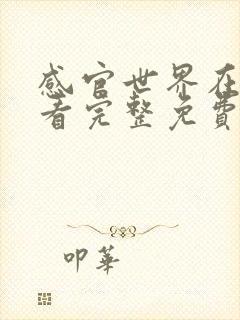 感官世界在
看完整免費
叩華